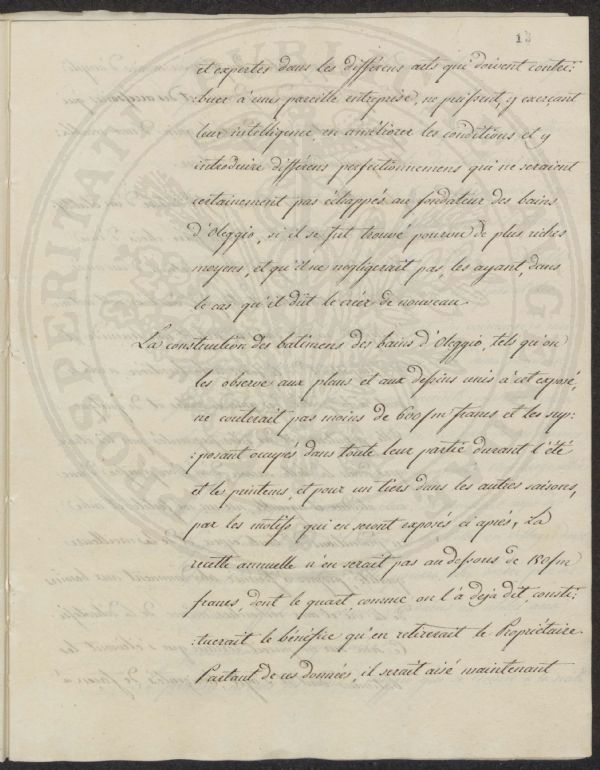 13
et expertes dans les différens arts qui doivent contri:
:buer à une pareille entreprise, ne puissent, y exerçant
leur intelligence, en améliorer les conditions et y
introduire différens perfectionnemens qui ne seraient
certainement pas échappés au fondateur des bains
d'Oleggio, si il se fut trouvé pourvu de plus riches
moyens, et qu'il ne negligerait pas, les ayant, dans
le cas qu'il dût le créer de nouveau.
La construction des batimens des bains d'Oleggio, tels qu'on
les observe aux plans et aux dessins unis à cet exposé,
ne couterait pas moins de 600/m francs et les sup:
:posant occupés dans toute leur partie durant l'été
et le printems, et pour un tiers dans les autres saisons,
par les motifs qui en seront exposés ci après, la
recette annuelle n'en serait pas au dessous de 180/m
francs, dont le quart, comme on l'à deja dit, consti:
:tuerait le bénéfice qu'en retirerait le Propriétaire.
Partant de ces données, il serait aisé maintenant
PROSPERITATI